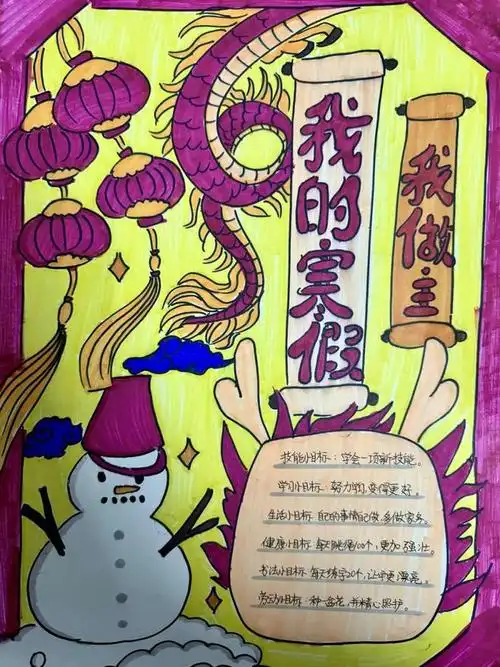 我的寒假
我做主
技能小目标：学会一项新技能。
学习小目标：努力学习，变得更好。
生活小目标：自己的事情自己做，多做家务。
健康小目标：每天跳绳100个，更加强壮。
书法小目标：每天练字20个，让字更漂亮。
劳动小目标：种一盆花，并精心照护。